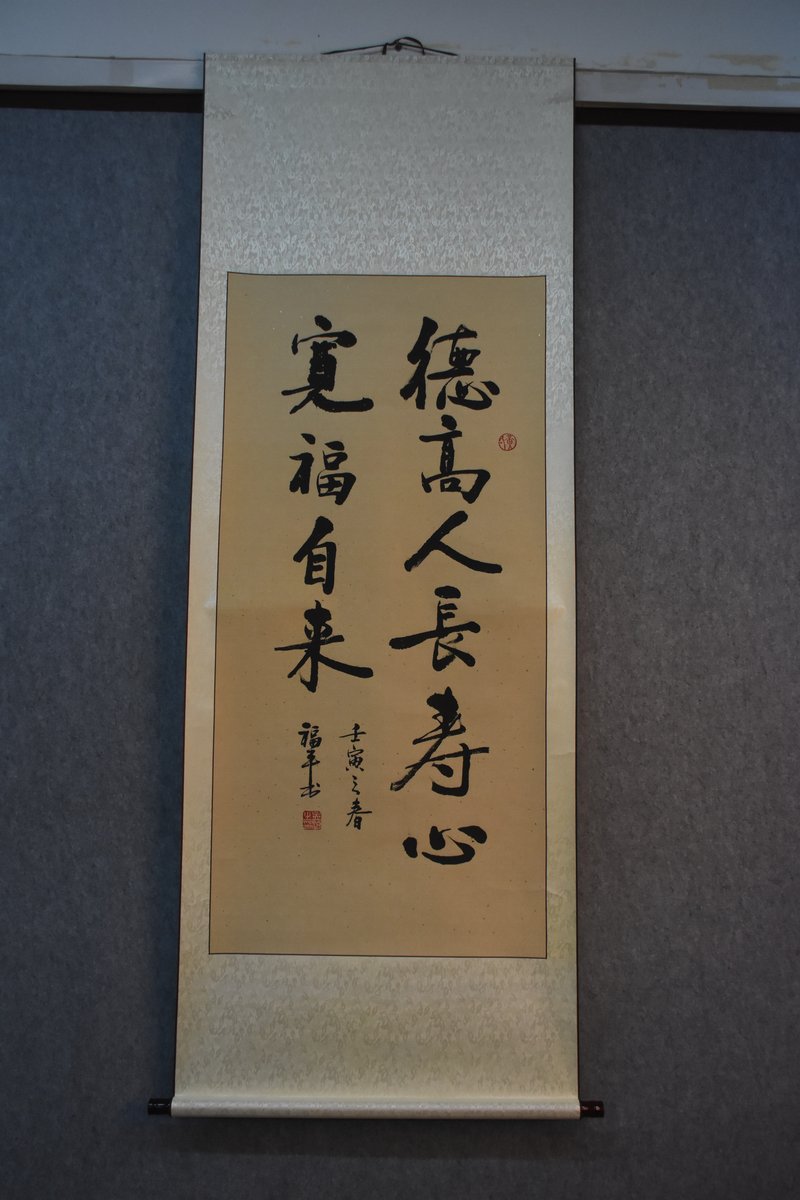 德高人長寿心
寛福自来
壬寅之春
福平书